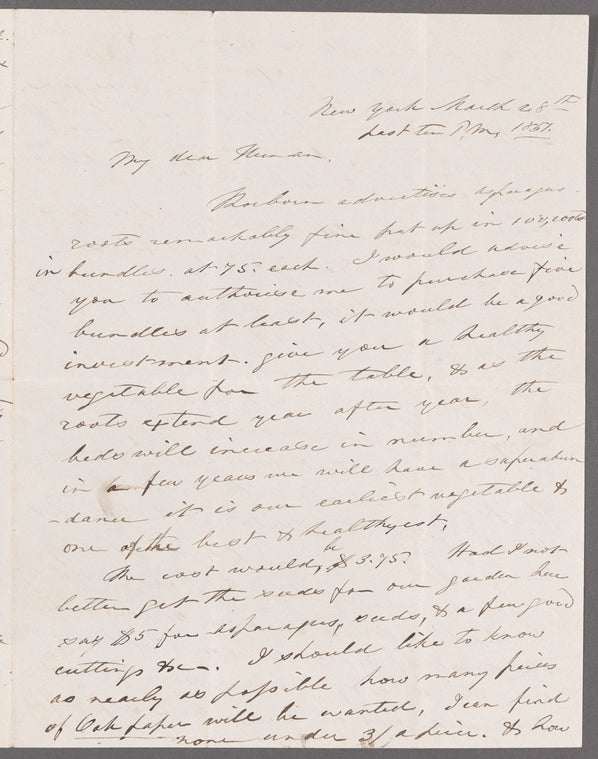 New York March 28th
past ten P.M. 1851.
My dear Herman,
Thorburn advertises asparagus
roots remarkably fine put up in 100, roots
in bundles. at 75. each. I would advise
you to authorise me to purchase five
bundles at least, it would be a good
investment. give you a healthy
vegetable for the table, & as the
roots extend year after year, the
beds will increase in number, and
in a few years we will have a superabun
-dance it is our earliest vegetable &
one of the best & healthyest,
The cost would, be $3.75. Had I not
better get the seeds for our garden here
say $5 for asparagus, seeds, & a few good
cuttings &c—. I should like to know
as nearly as possible how many pieces
of Oak paper will be wanted, I can find
none under 3/ a piece. & how